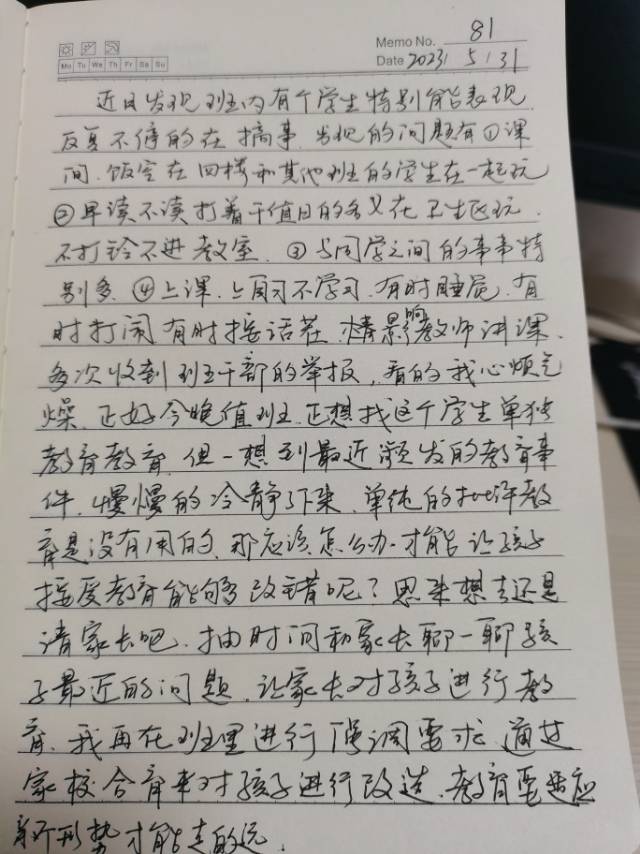 Memo No. 81
Mo Tu We Th Fr Sa Su
Date 2023 / 5 / 31
近日发现班内有个学生特别能表现,
反复不停的在搞事,发现的问题有①课
间、饭空在四楼和其他班的学生在一起玩
②早读不读打着干值日的名义在卫生区玩,
不打铃不进教室。③与同学之间的事事特
别多,④上课、上自习不学习,有时睡觉,有
时打闹有时接话茬,情影响教师讲课,
多次收到班干部的举报,看的我心烦气
燥,正好今晚值班,正想找这个学生单独
教育教育,但一想到最近频发的教育事
件,慢慢的冷静下来,单纯的批评教
育是没有用的,那应该怎么办才能让孩子
接受教育能够改错呢?思来想去还是
请家长吧,抽时间和家长聊一聊孩
子最近的问题,让家长对孩子进行教
育,我再在班里进行强调要求,通过
家校合育来对孩子进行改造,教育要适应
新形势才能走的远。